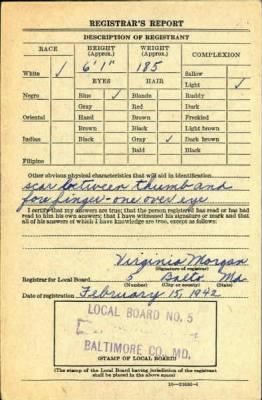 REGISTRAR'S REPORT
DESCRIPTION OF REGISTRANT
RACE HEIGHT (Approx.) WEIGHT (Approx.) COMPLEXION
White ✓ 6' 1" 185 Sallow
Light ✓
EYES HAIR Ruddy
Negro Blue ✓ Blonde Dark
Gray Red Freckled
Oriental Hazel Brown Light brown
Brown Black Dark brown
Indian Black Gray ✓ Black
Bald
Filipino
Other obvious physical characteristics that will aid in identification
scar between thumb and
fore finger - one over eye
I certify that my answers are true; that the person registered has read or has had
read to him his own answers; that I have witnessed his signature or mark and that
all of his answers of which I have knowledge are true, except as follows:
Virginia Morgan
(Signature of registrar)
Registrar for Local Board 5 Balto Md.
(Number) (City or county) (State)
Date of registration February 15, 1942
LOCAL BOARD NO. 5
BALTIMORE CO., MD.
(STAMP OF LOCAL BOARD)
(The stamp of the Local Board having jurisdiction of the registrant
shall be placed in the above space)